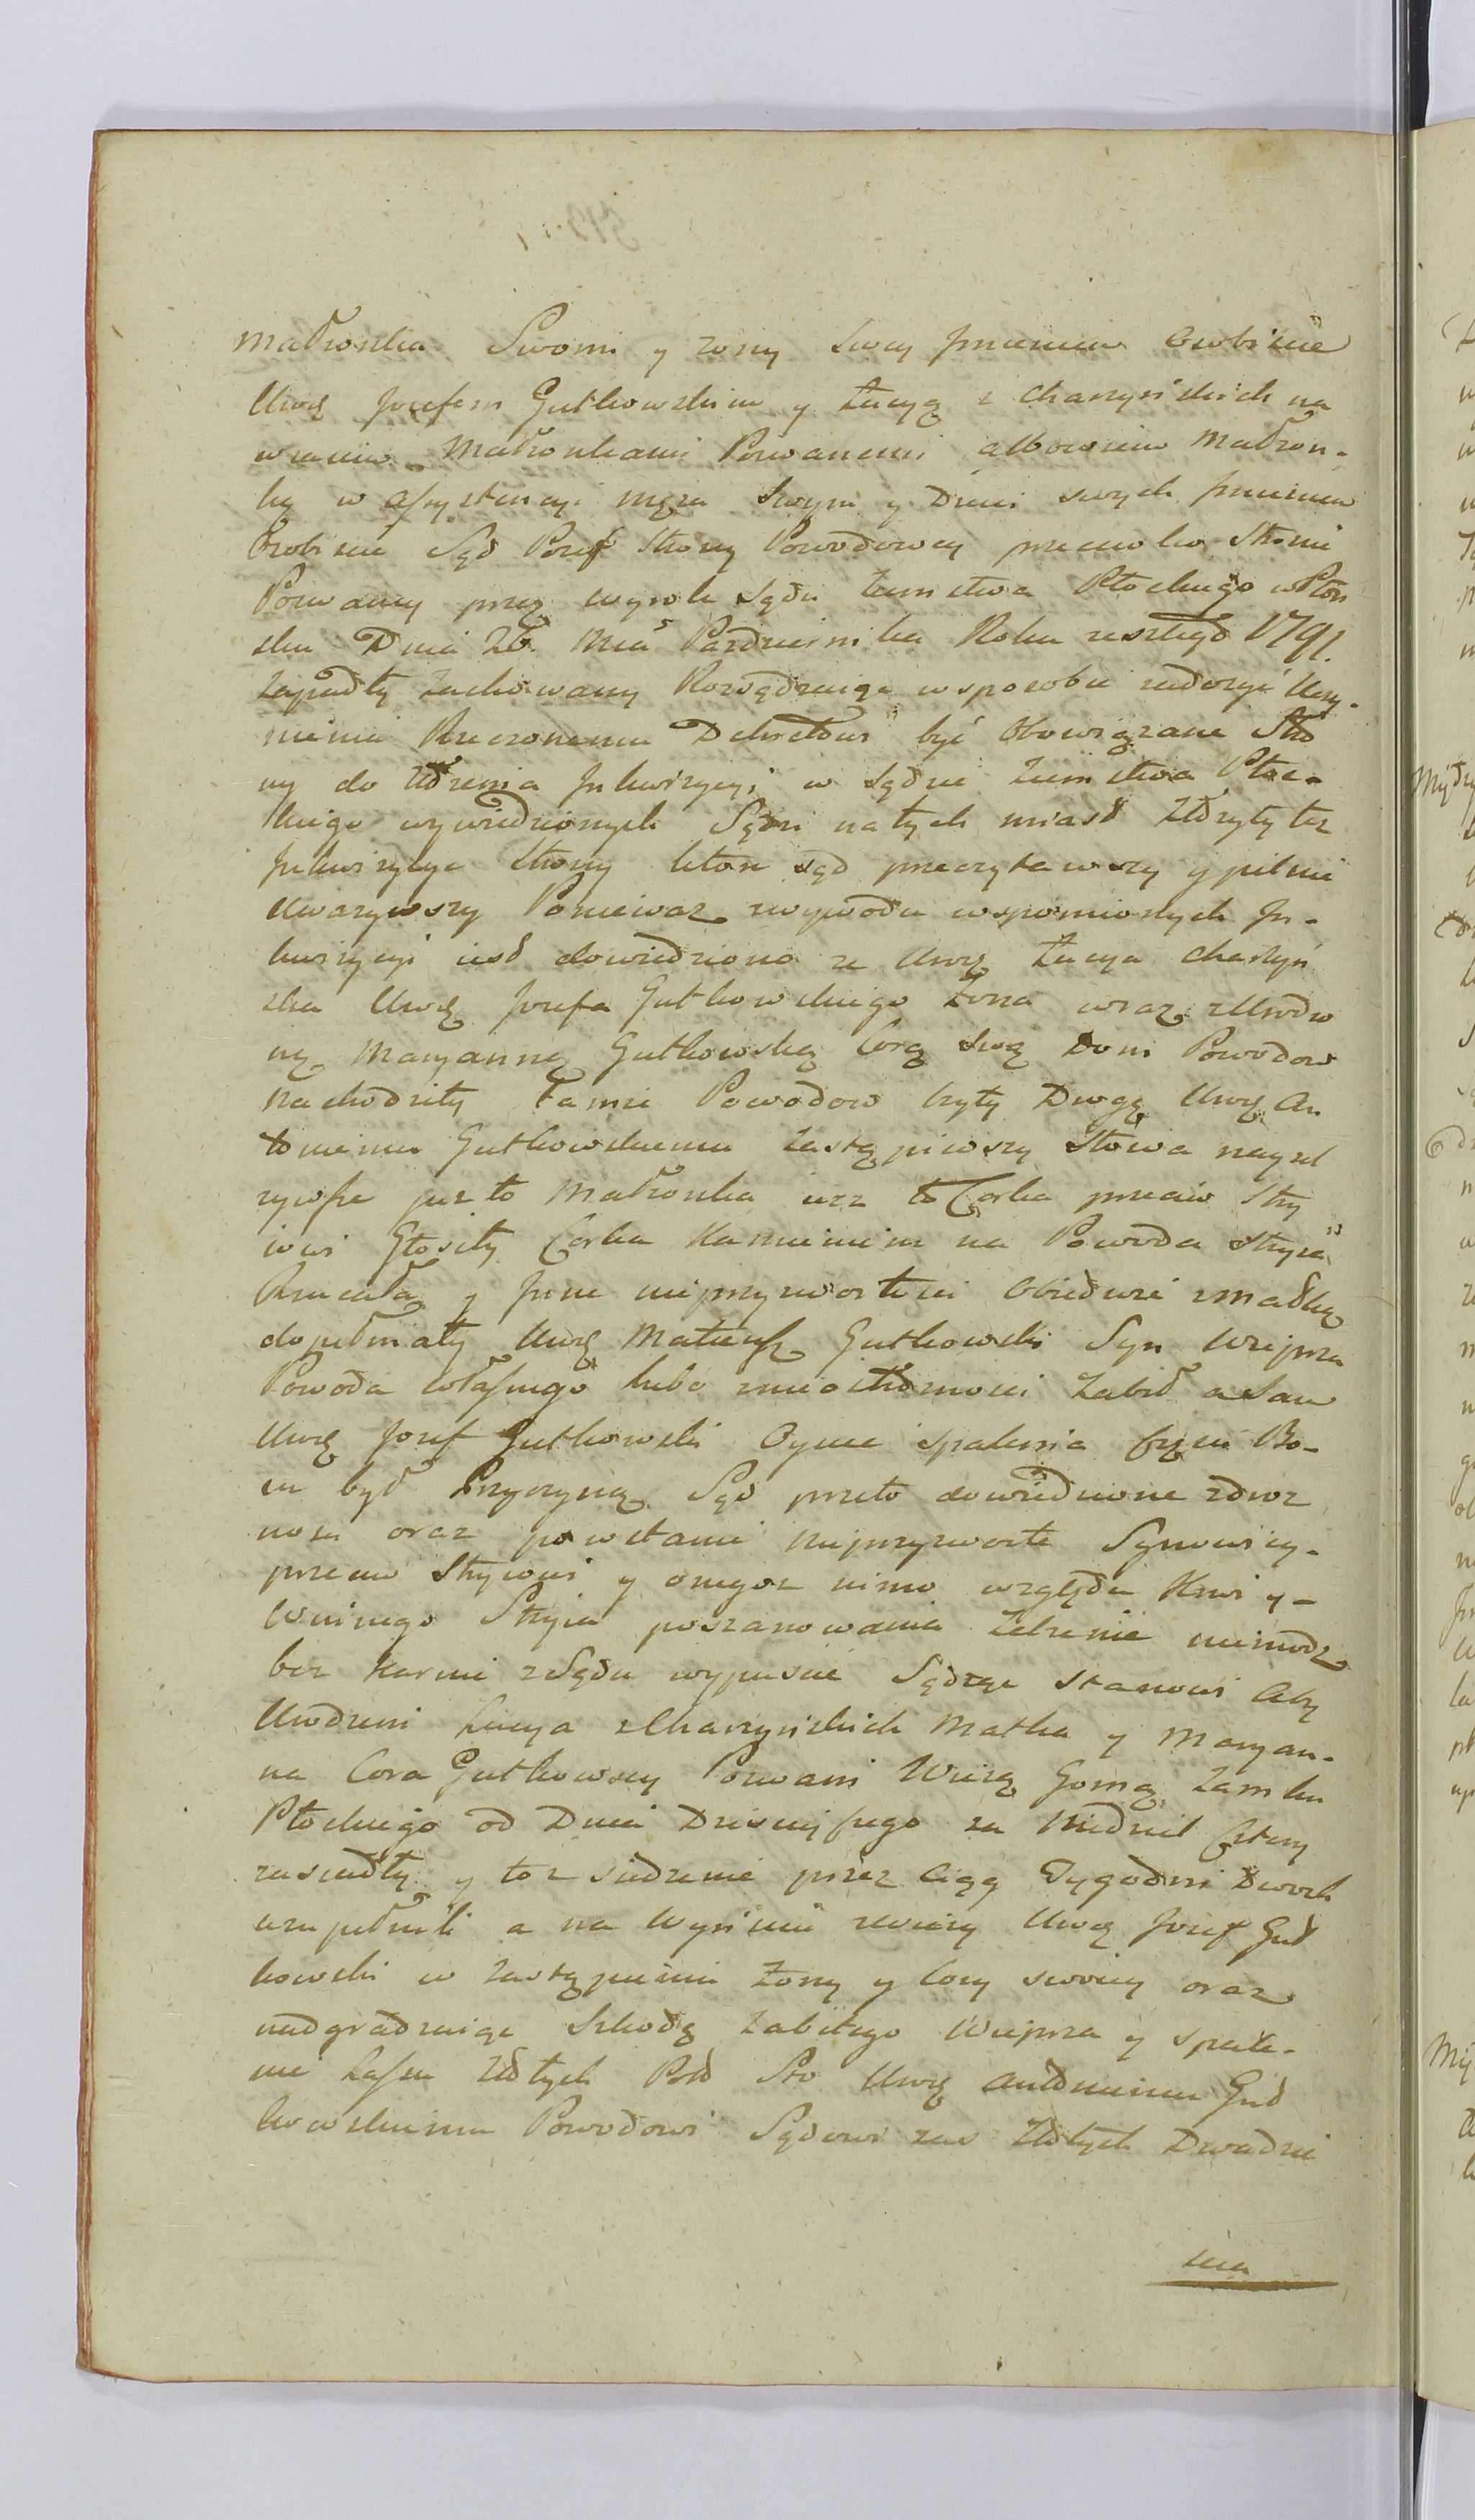 Małzonka Swoim y zony swey Jmieniem Osobiscie
Urod Jozefem Gutkowskim y Łucyą z Charzyńskich na
wzaiem Małzonkami Pozwanemi albowiem Małzon-
ką w assystencyi męza Swym y Dzieci swych Jmieniem
Osobiscie Sąd Poref Strony Powodowey przeciwko Stronie
Pozwaney przez wyrok Sądu Ziemstwa Płockiego w Płon
sku Dnia 26. Mca Pazdziernika Roku zeszłego 1791.
zapadły zachowany Rozsądzaiąc w sposobie zadosyć Uczy-
nienia Rzeczonemu Dekretowi być Obowiązane Stro
ny do Utrzenia Jnkwizycyi w Sądzie Ziemstwa Płoc-
kiego wywiedzionych Sądzi natych miast Utrzyty tez
Jnkwizycye Strony ktore sąd przeczytawszy y pilnie
Uwazywszy Poniewaz z wywodu wspomionych Jn-
kwizycyi iest dowiedziono ze Urod Łucya Charzyń
ska Urod Jozefa Gutkowskiego Zona wraz z Urodzo
ną Maryanną Gutkowską Corą Swą Dom Powodow
nachodziły Tamze Powodow były Drogę Urod An
toniemu Gutkowskiemu Zastąpiwszy Słowa nayul
zywsze juz to Małzonka iuz to Corka przeciw Stry
iowi Głosiły Corka Kamieniem na Powoda Stryia
Rzucała y Jnne nieprzyzwoitosci Obiedwie z matką
dopełniały Urod Mateusz Gutkowski Syn Wieprza
Powoda własnego lubo z nieostroznosci Zabił a Sam
Urod Jozef Gutkowski Ogniem spalenia częsci Bo-
ru był Przyczyną Sąd przeto dowiedzione zdroz
nosci oraz powstanie nieprzyzwoite Synowicy
przeciw Stryiowi y onegoz mimo względu Krwi y-
winnego Stryia poszanowania Zelzenie niemogąc
bez Karnie z Sądu wypuscic Sądząc Stanowi Aby
Urodzeni Łucya z Charzyńskich Matka y Maryan-
na Cora Gutkowscy Pozwani Wiezą Gorną Zamku
Płockiego od Dnia Dzisieyszego za Niedziel Cztery
zasiadły y toz siedzenie przez Ciąg Tygodni Dwoch
uzupełnili a na Wyisciu z wiezy Urod Jozef Gut
kowski w zastąpieniu Zony y Cory swoiey oraz
nadgradzaiąc Szkodę Zabitego Wieprza y spale-
nie Lassu Złotych Pol Sto Urod Antoniemu Gut
kowskiemu Powodowi Sądowi zas Złotych Dwadzie
scia